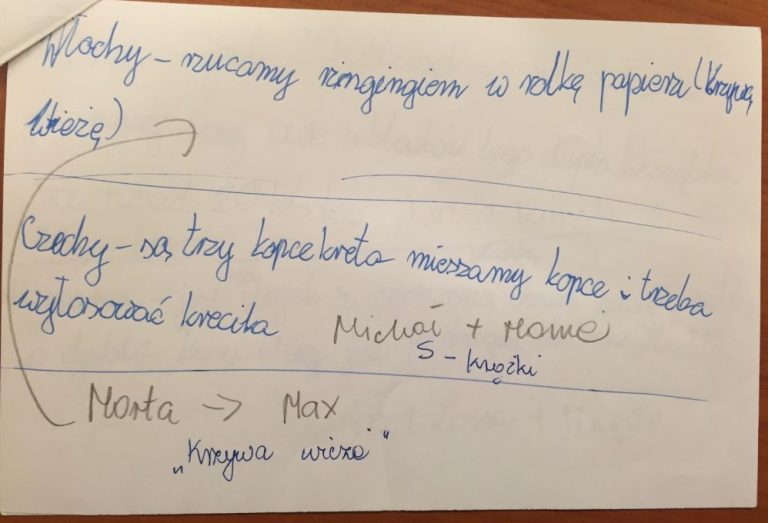 Włochy – rzucamy ringingiem w rolkę papieru (krzywą
wieżę)
Czechy – są trzy kopce kreta mieszamy kopce i trzeba
wylosować krecika
Michał + Mamej
S – krążki
Marta → Max
„Krzywa wieża"